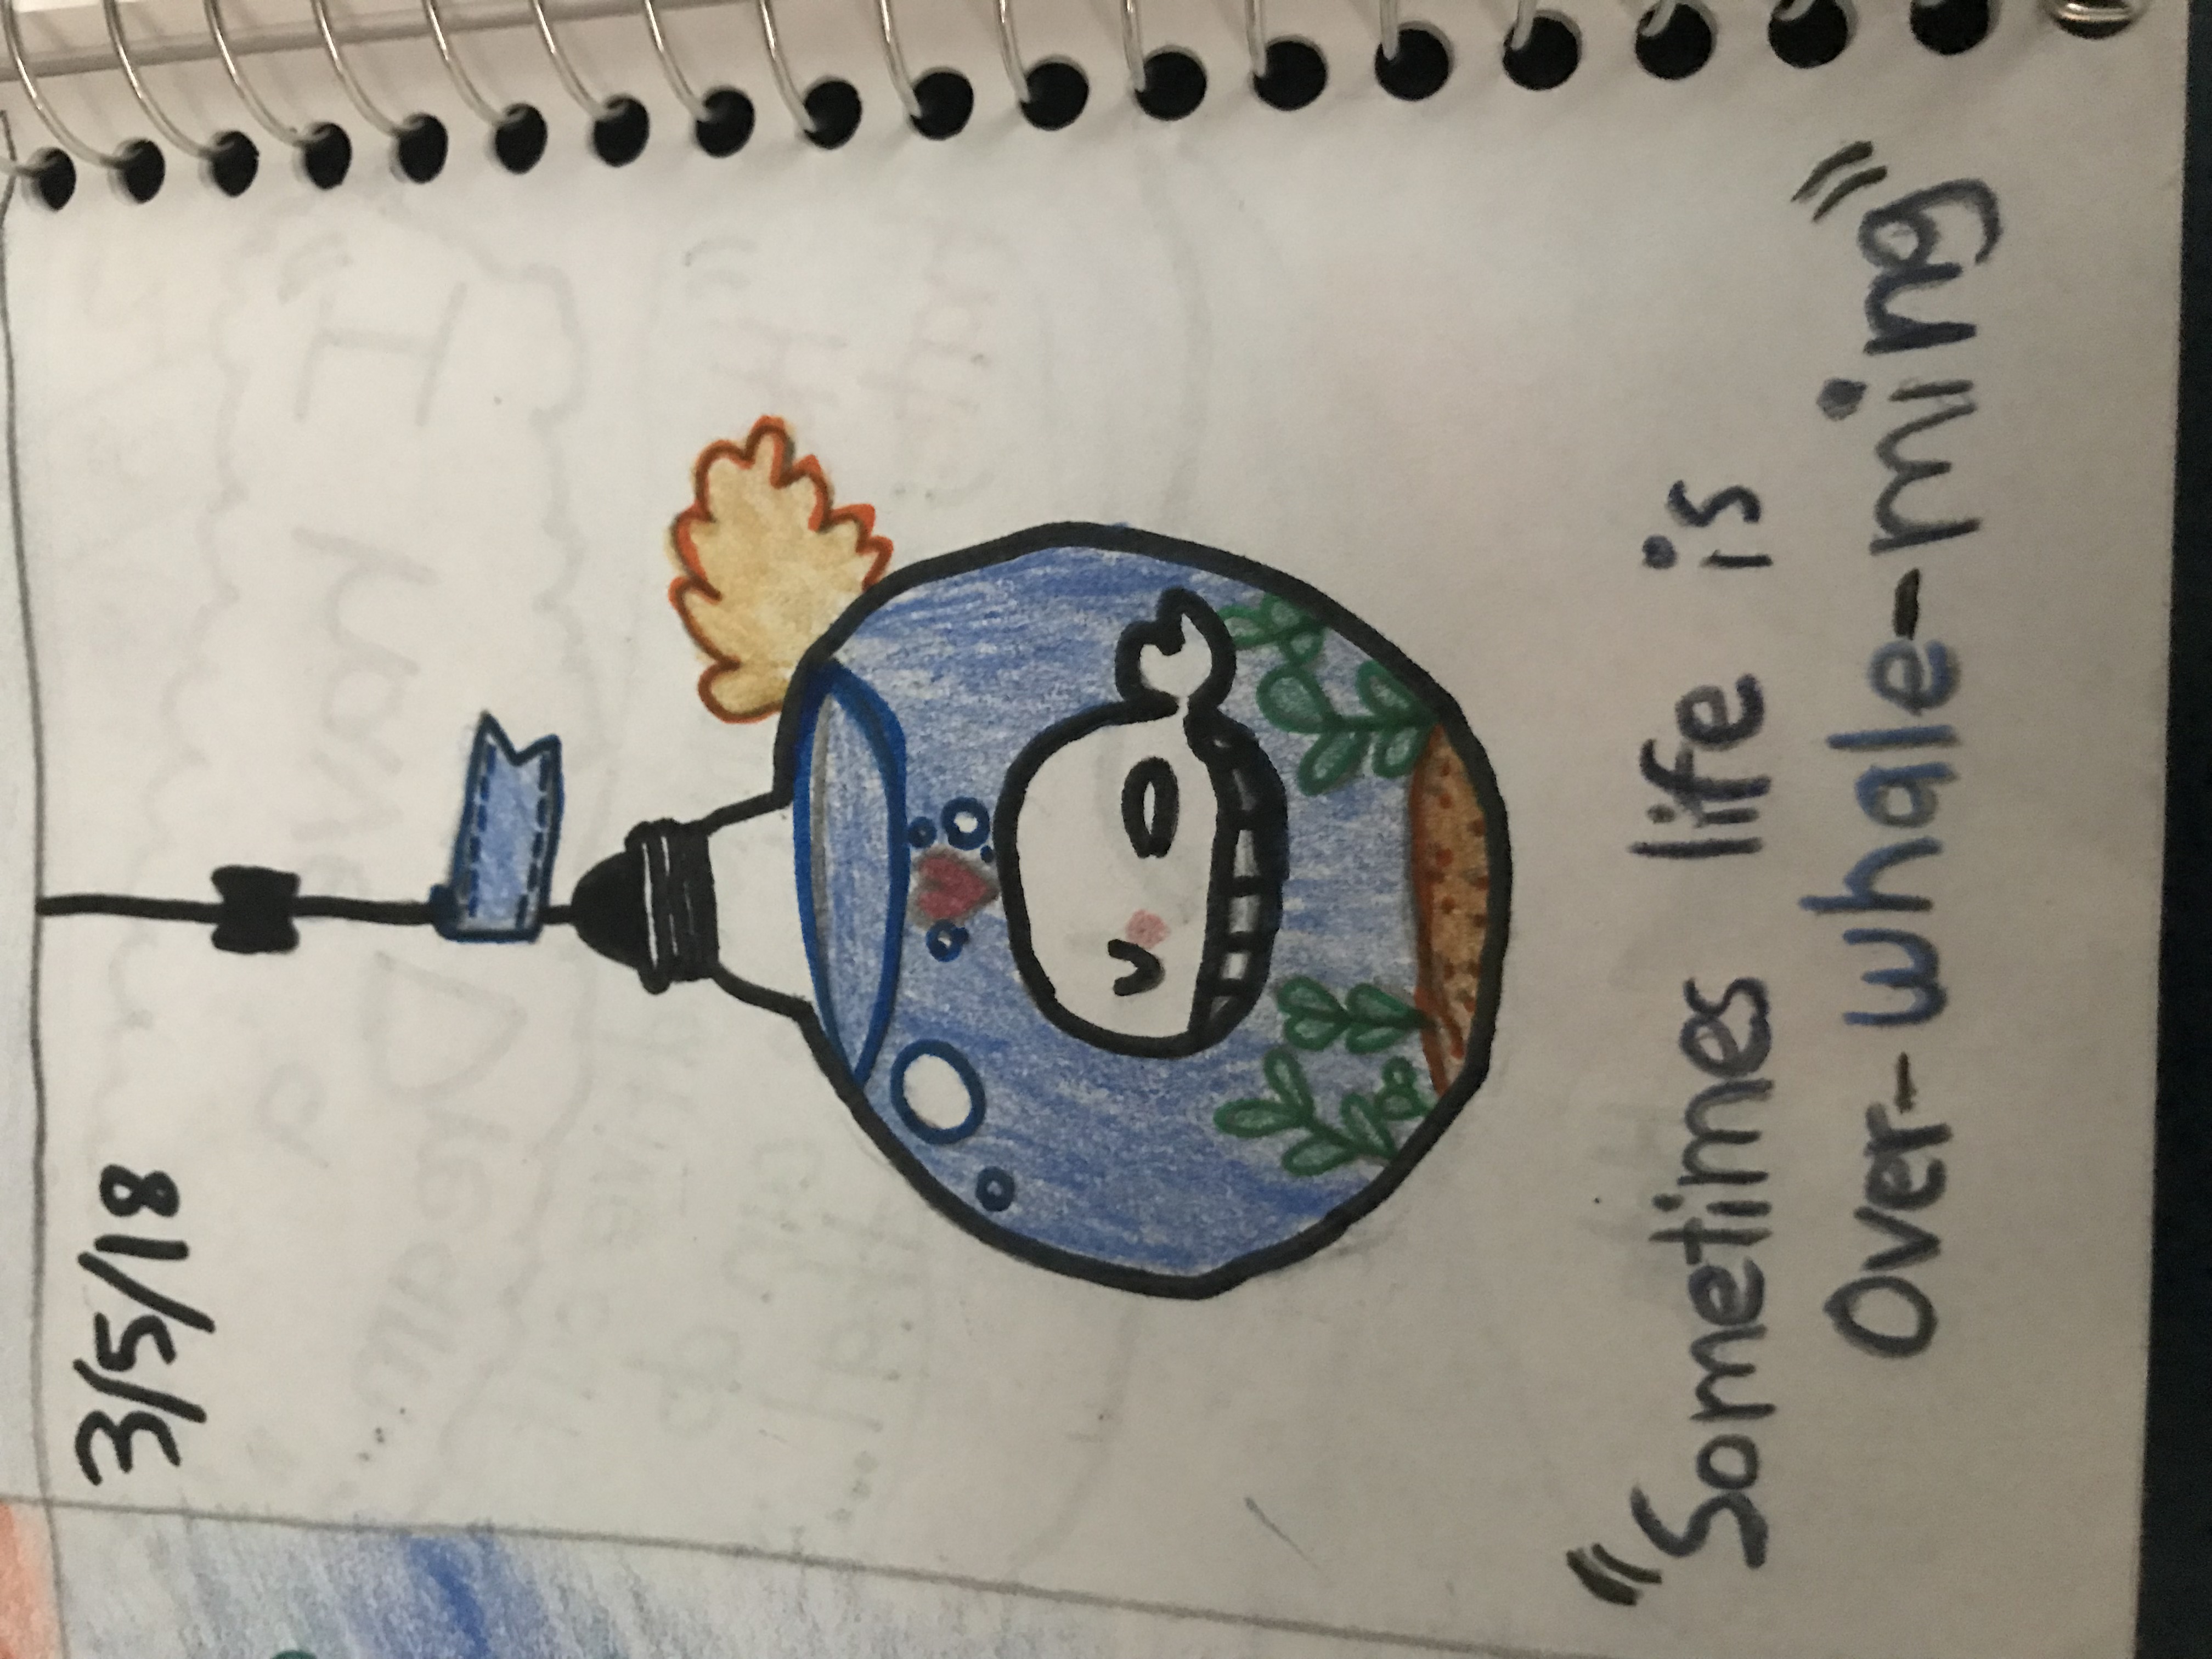 3/5/18
"Sometimes life is
Over-whale-ming"